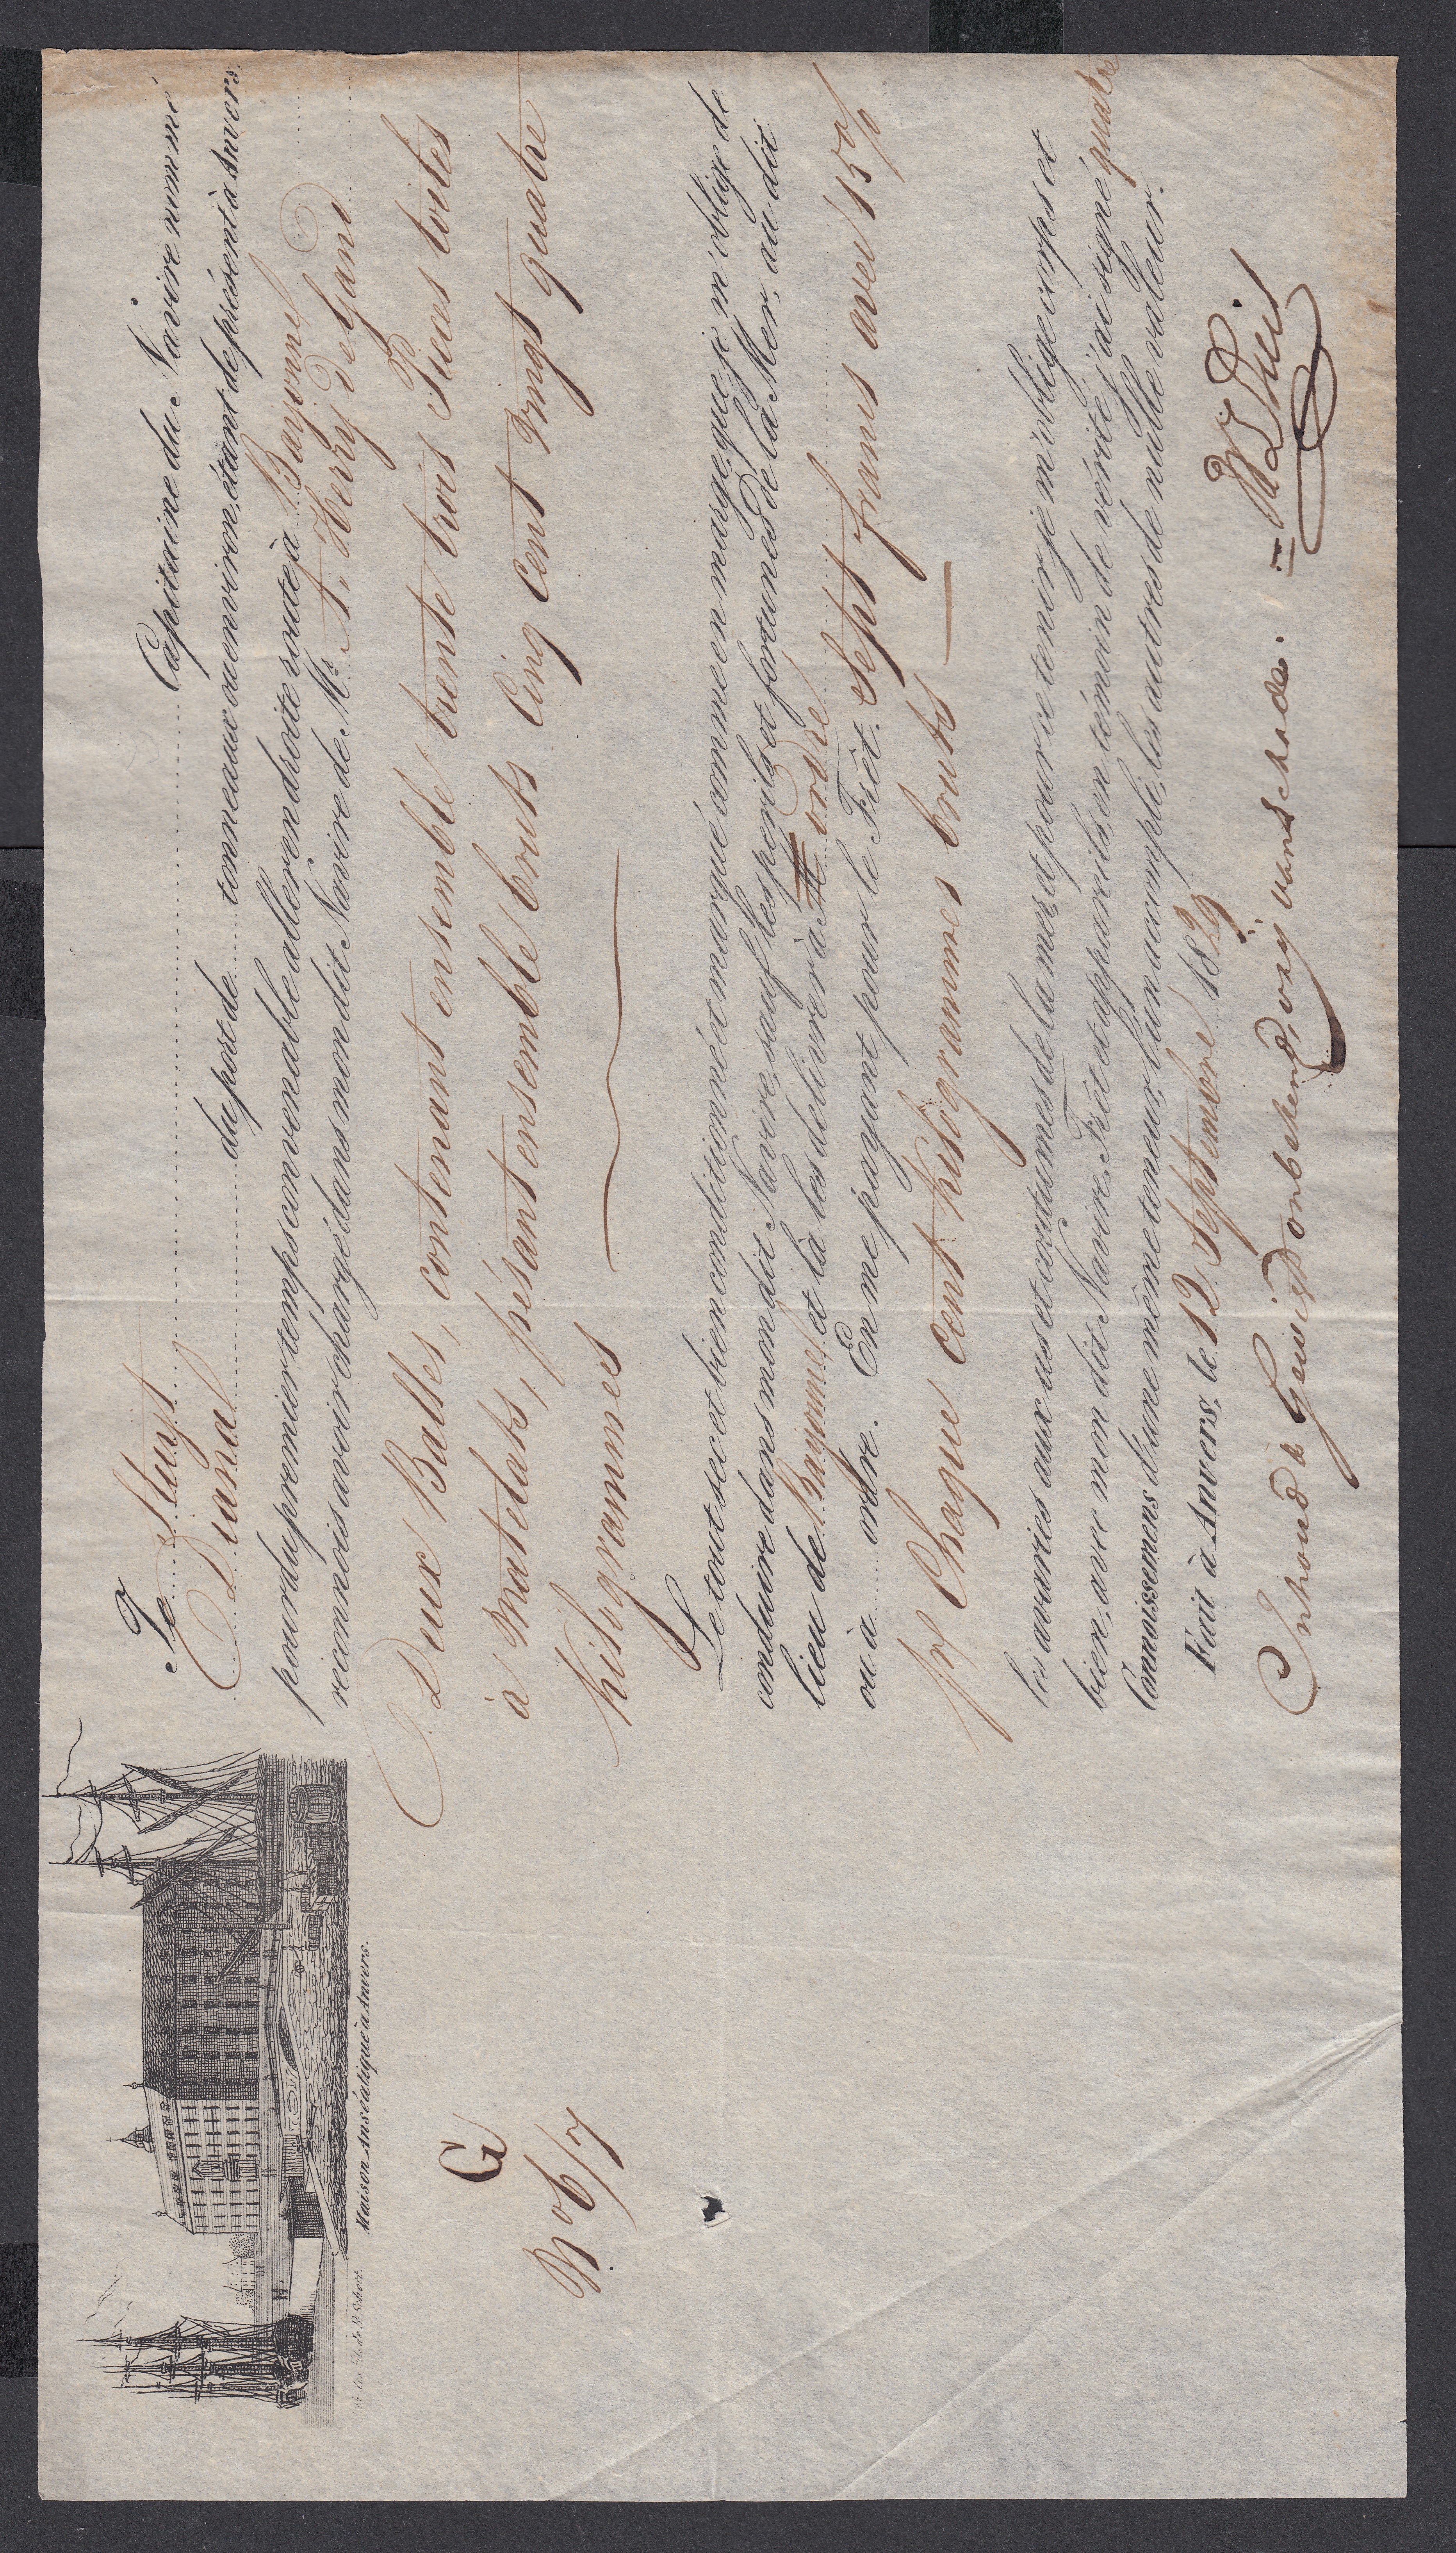 Je Stuyt Capitaine du Navire nommé
Diana du port de tonneaux ou environ, étant de présent à Anvers
pour du premier temps convenable aller en droite route à Bayonne
reconnois avoir chargé dans mon dit Navire de Mr. A. Herry de Gand
Deux Balles, contenant ensemble trente trois Pieces toiles
à Matelats, pésant ensemble bruts Cinq Cent Vingt quatre
Kilogrammes
Le tout sec et bien conditionné et marqué comme en marge, que je m'oblige de
conduire dans mon dit Navire, sauf les perils et fortunes de la Mer, au dit
lieu de Bayonne et là les delivrer à M ordre
ou à ordre. En me payant pour le Frêt. Sept francs avec 15%
pr Chaque Cent Kilogrammes bruts
les avaries aux us et coutumes de la mer, et pour ce tenir je m'oblige corps et
bien, avec mon dit Navire, Frêt et appareils, en témoin de vérité j'ai signé quatre
Connoissemens d'une même teneur, l'un accompli, les autres de nulle valeur.
Fait à Anvers, le 12 Septembre 1829
Inhoud & Gewigt onbekend, vrij van schade.
Maison Anséatique à Anvers.
G
No 6/7